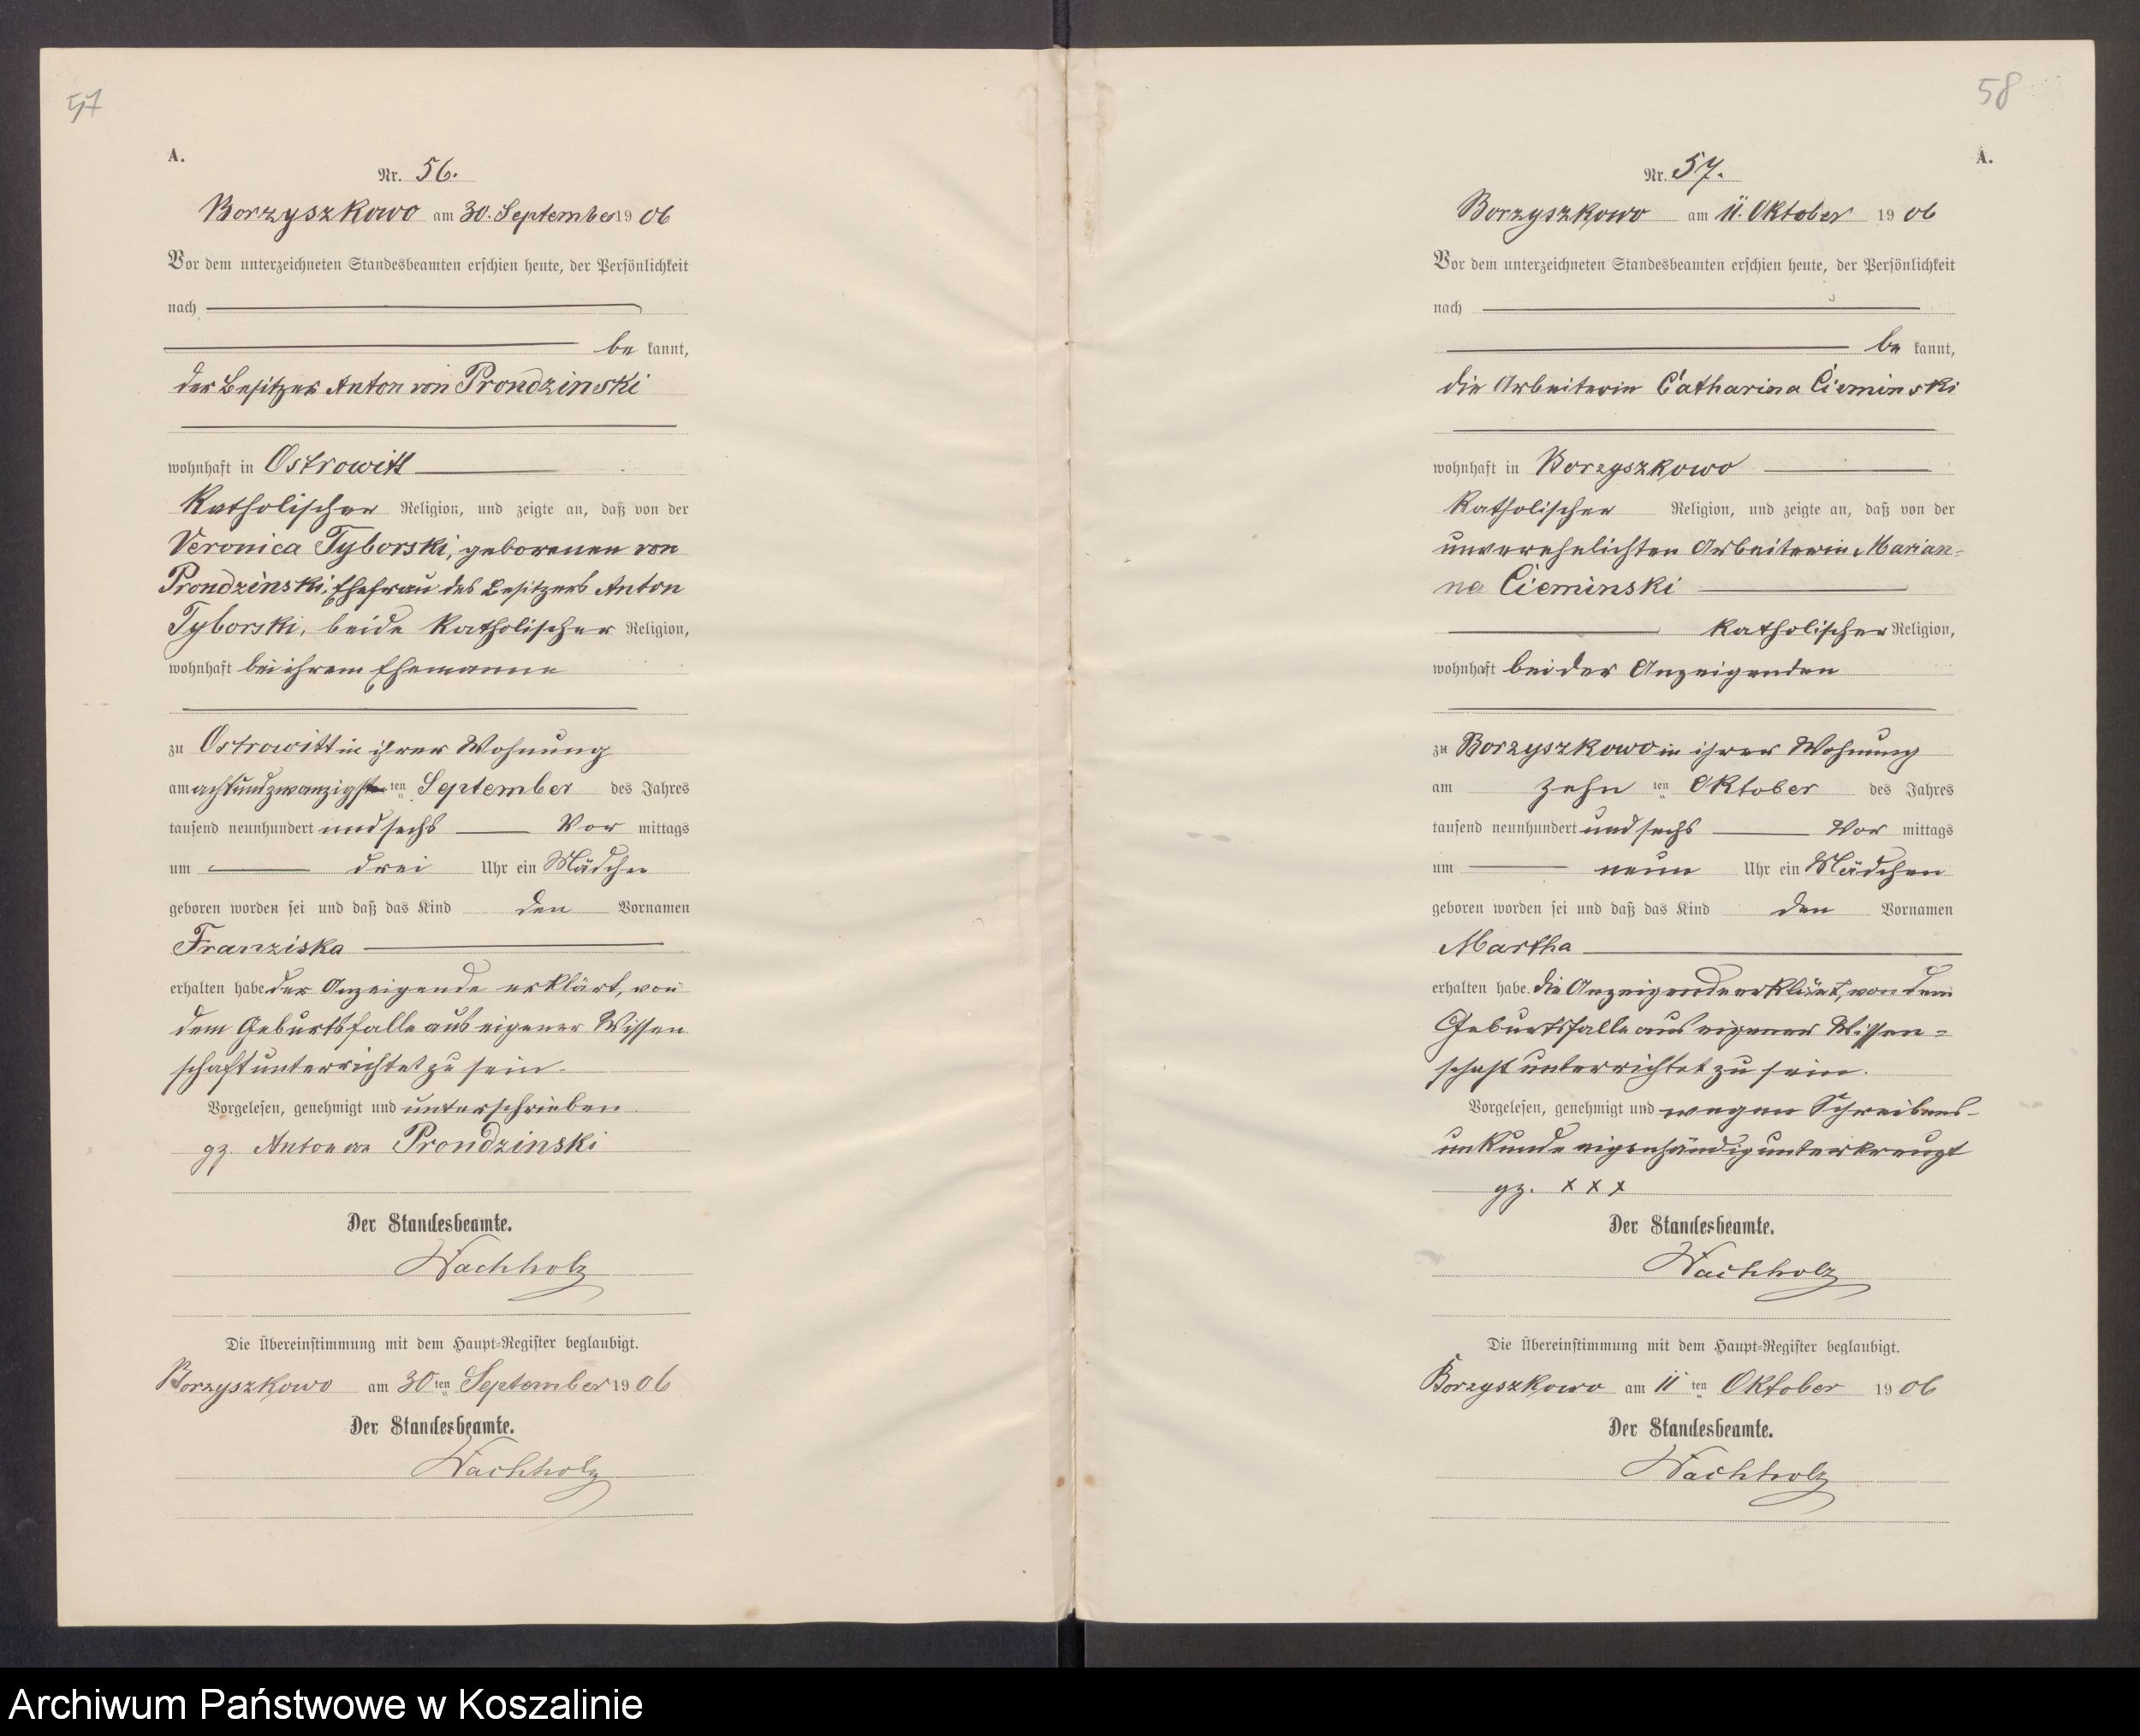 57
A.
Nr. 56.
Borzyszkowo am 30. September 1906
Vor dem unterzeichneten Standesbeamten erschien heute, der Persönlichkeit
nach
be kannt,
der Besitzer Anton von Prondzinski
wohnhaft in Ostrowitt
katholischer Religion, und zeigte an, daß von der
Veronica Tyborski, geborenen von
Prondzinski, Ehefrau des Besitzers Anton
Tyborski, beide katholischer Religion,
wohnhaft bei ihrem Ehemanne
zu Ostrowitt in ihrer Wohnung
am achtundzwanzigsten ten September des Jahres
tausend neunhundert und sechs Vor mittags
um drei Uhr ein Mädchen
geboren worden sei und daß das Kind den Vornamen
Franziska
erhalten habe der Anzeigende erklärt, von
dem Geburtsfalle aus eigener Wissen
schaft unterrichtet zu sein.
Vorgelesen, genehmigt und unterschrieben.
gz. Anton von Prondzinski
Der Standesbeamte.
Wachholz
Die Übereinstimmung mit dem Haupt-Register beglaubigt.
Borzyszkowo am 30 ten September 1906
Der Standesbeamte.
Wachholz
58
A.
Nr. 57.
Borzyszkowo am 11. Oktober 1906
Vor dem unterzeichneten Standesbeamten erschien heute, der Persönlichkeit
nach
be kannt,
die Arbeiterin Catharina Cieminski
wohnhaft in Borzyszkowo
katholischer Religion, und zeigte an, daß von der
unverehelichten Arbeiterin Marian-
na Cieminski
katholischer Religion,
wohnhaft bei der Anzeigenden
zu Borzyszkowo in ihrer Wohnung
am zehn ten Oktober des Jahres
tausend neunhundert und sechs Vor mittags
um neun Uhr ein Mädchen
geboren worden sei und daß das Kind den Vornamen
Martha
erhalten habe. die Anzeigende erklärt, von dem
Geburtsfalle aus eigener Wissen-
schaft unterrichtet zu sein.
Vorgelesen, genehmigt und wegen Schreibens-
unkunde eigenhändig unterkreuzt
gz. x x x
Der Standesbeamte.
Wachholz
Die Übereinstimmung mit dem Haupt-Register beglaubigt.
Borzyszkowo am 11 ten Oktober 1906
Der Standesbeamte.
Wachholz
Archiwum Państwowe w Koszalinie